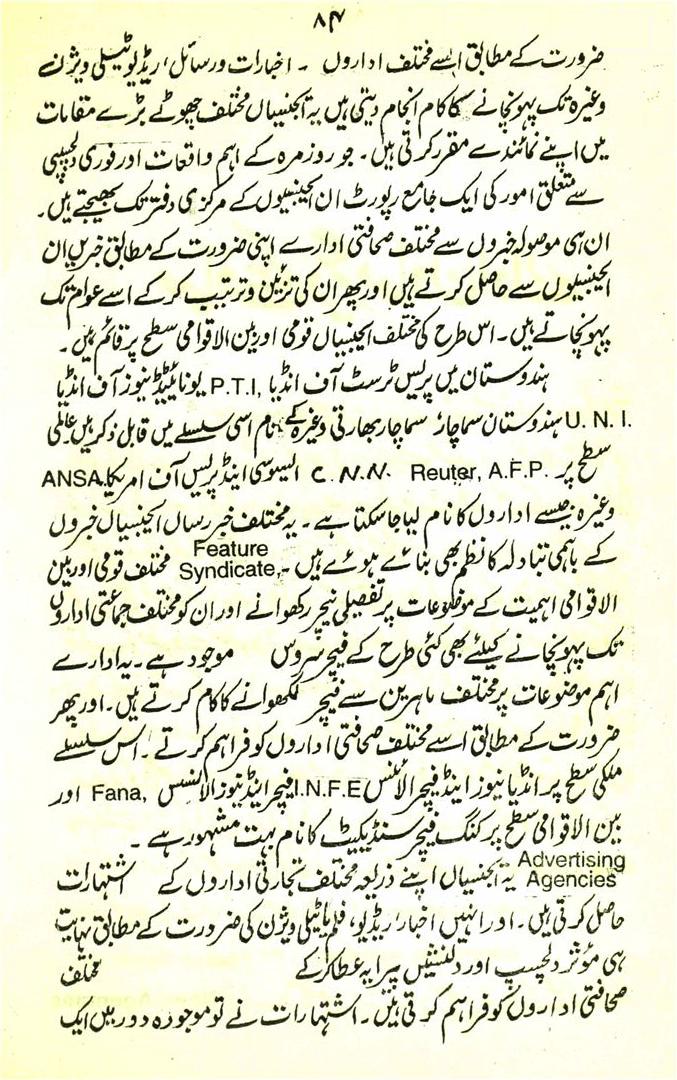 ۸۴
ضرورت کے مطابق ایسے مختلف اداروں ۔ اخبارات و رسائل، ریڈیو ٹیلی ویژن نے
وغیرہ تک پہونچانے کا کام انجام دیتی ہیں یہ ایجنسیاں مختلف چھوٹے بڑے مقامات
میں اپنے نمائندے مقرر کرتی ہیں ۔ جو روزمرہ کے اہم واقعات اور فوری دلچسپی
سے متعلق امور کی ایک جامع رپورٹ ان ایجنسیوں کے مرکزی دفتر تک بھیجتے ہیں۔
ان ہی موصولہ خبروں سے مختلف صحافتی ادارے اپنی ضرورت کے مطابق خبریں ان
ایجنسیوں سے حاصل کرتے ہیں اور پھر ان کی تزئین و ترتیب کر کے اسے عوام تک
پہونچاتے ہیں۔ اس طرح کی مختلف ایجنسیاں قومی اور بین الاقوامی سطح پر قائم ہیں ۔
ہندوستان میں پریس ٹرسٹ آف انڈیا P.T.I, یونائیٹڈ نیوز آف انڈیا
U. N. I. ہندوستان سماچار، سماچار بھارتی وغیرہ کے نام اسی سلسلے میں قابل ذکر ہیں عالمی
سطح پر Reuter, A.F.P. C.N.N. ایسوسی اینڈ پریس آف امریکا ANSA.
وغیرہ جیسے اداروں کا نام لیا جا سکتا ہے ۔ یہ مختلف خبر رساں ایجنسیاں خبروں
کے باہمی تبادلہ کا نظم بھی بنائے ہوئے ہیں ۔ Feature Syndicate, مختلف قومی اور بین
الاقوامی اہمیت کے موظوعات پر تفصیلی فیچر رکھوانے اور ان کو مختلف جماعتی اداروں
تک پہونچانے کیلئے بھی کئی طرح کے فیچر سروس موجود ہے ۔ یہ ادارے
اہم موضوعات پر مختلف ماہرین سے فیچر لکھوانے کا کام کرتے ہیں ۔ اور پھر
ضرورت کے مطابق اسے مختلف صحافتی اداروں کو فراہم کرتے ۔ اس سلسلے
ملکی سطح پر انڈیا نیوز اینڈ فیچر الائنس I.N.F.E فیچر اینڈ نیوز الائنسس Fana, اور
بین الاقوامی سطح پر کنگ فیچر سنڈیکیٹ کا نام بہت مشہور ہے ۔
Advertising Agencies یہ ایجنسیاں اپنے ذریعہ مختلف تجارتی اداروں کے اشتہارات
حاصل کرتی ہیں ۔ اور انہیں اخبار، ریڈیو، فلم یا ٹیلی ویژن کی ضرورت کے مطابق نہایت
ہی مؤثر دلچسپ اور دلنشیں پیرایہ عطا کر کے مختلف
صحافتی اداروں کو فراہم کرتی ہیں ۔ اشتہارات نے تو موجودہ دور میں ایک